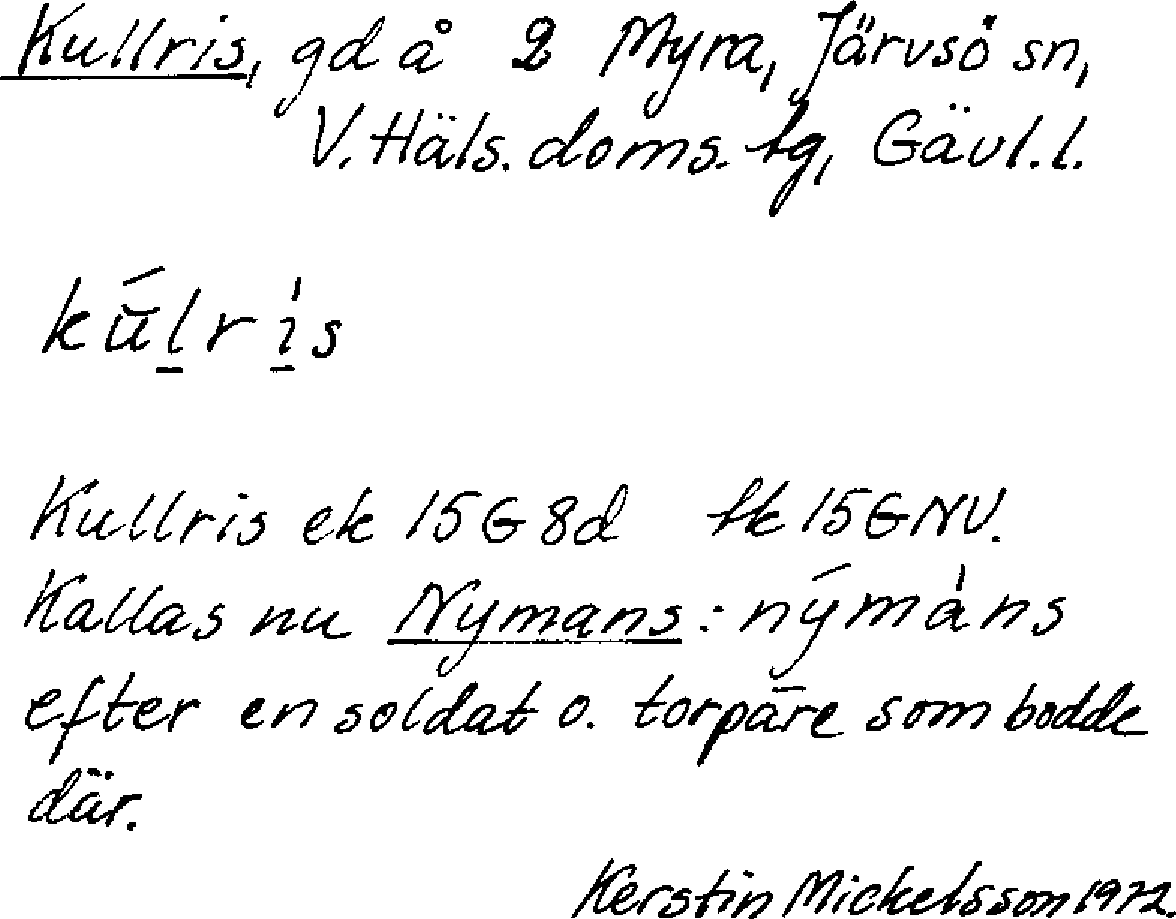 Kullris, gd å 2 Myra, Järvsö sn,
V. Häls. doms. tg, Gävl. l.
kúlrìs
Kullris ek 15G8d tk 15GNV.
Kallas nu Nymans: nýmàns
efter en soldat o. torpare som bodde
där.
Kerstin Mickelsson 1972